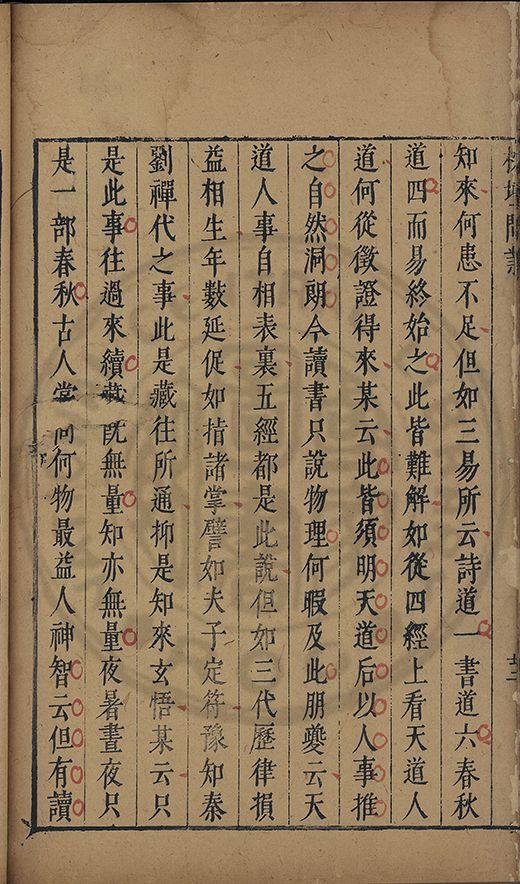 榕壇問業
知來何患不足但如三易所云詩道一書道六春秋
道四而易終始之此皆難解如從四經上看天道人
道何從徵證得來某云此皆須明天道后以人事推
之自然洞朗今讀書只說物理何暇及此朋夔云天
道人事自相表裏五經都是此說但如三代歷律損
益相生年數延促如指諸掌譬如夫子定符豫知秦
劉禪代之事此是藏往所通抑是知來玄悟某云只
是此事往過來續藏旣無量知亦無量夜暑晝夜只
是一部春秋古人嘗問何物最益人神智云但有讀